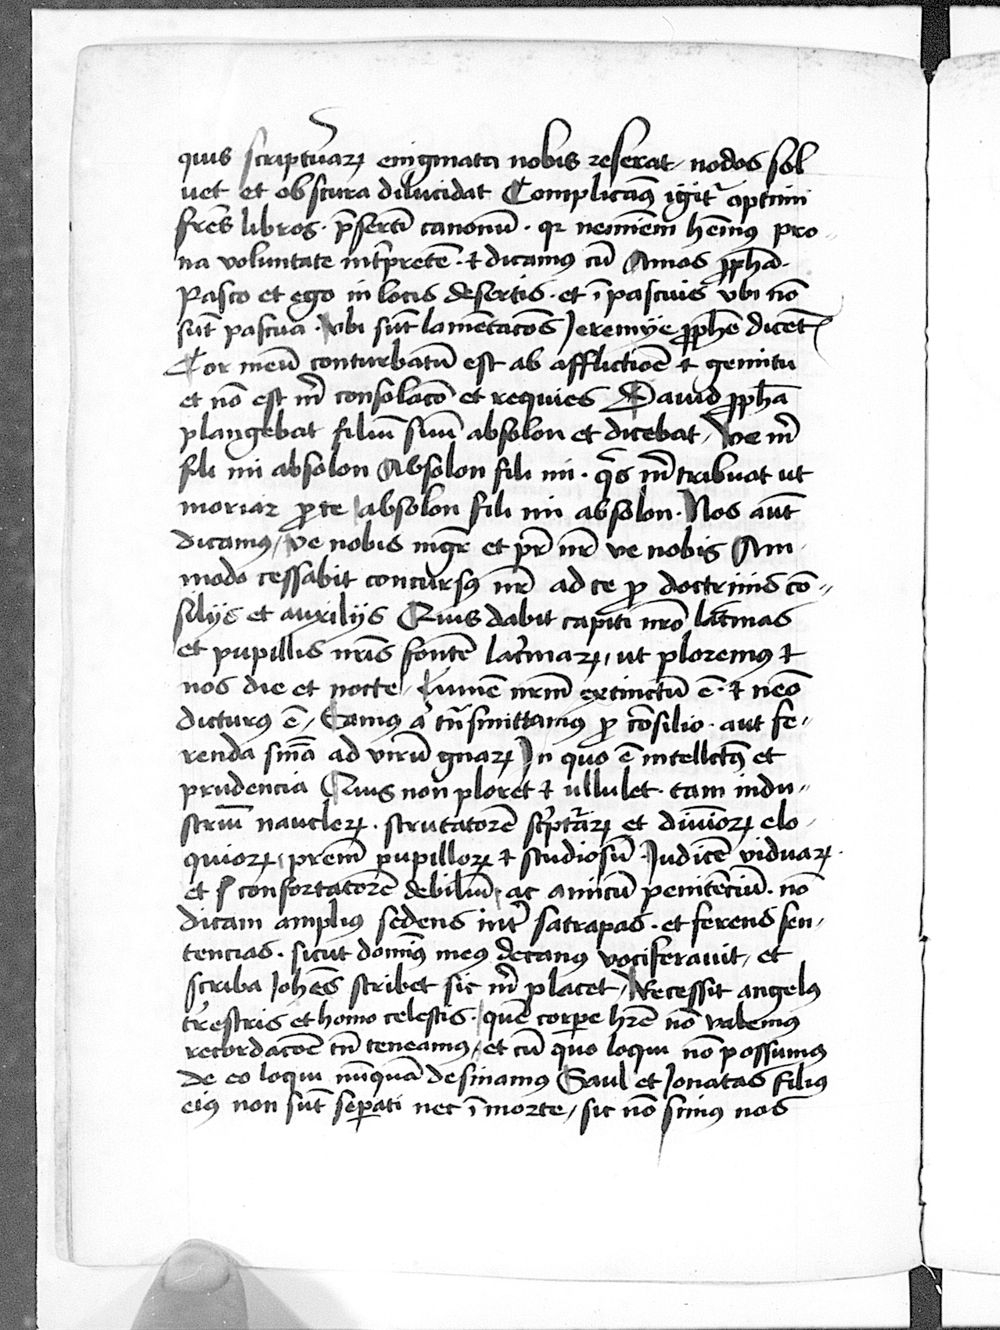 quis scriptūraꝝ enigmata nobis reserat, nodos sol
uet et obscura dilucidat Complicem9 igit᷑ optimi
fr̄es libros. p̄sertī canonū. qꝛ neminem hēm9 pro-
na voluntate int̄pretē. ⁊ dicamus cū Amos ꝓph̄a.
Pasco et ego in locis desertis. et ī pascuis vbi nō
sūt pascua. Vbi sūt lamētacōēs Jeremye ꝓph̄e dicēt᷑
Cor meū conturbatū est ab afflictiōe ⁊ gemitu
et nō est m̄ consolacō et requies Dauid ꝓph̄a
plangebat filiū suū absolon et dicebat, Ve m̄
fili mi absolon Absolon fili mi. q̄s m̄ tribuat ut
moriar ꝓ te absolon fili mi absolon. Nos aūt
dicamus, Ve nobis mgr̄ et pr̄ nr̄ ve nobis Am-
modo cessabit concursus nr̄ ad te ꝓ doctrinis cō-
silijs et auxilijs Quis dabit capiti nrō lac̄mas
et pupillis nr̄is fontē lac̄maꝝ, ut ploremus ⁊
nos die et nocte, Lumē nrm̄ extinctū ē. ⁊ neō
dicturus ē, Eamus a᷑ tn̄smittamus ꝓ cōsilio. aut fe-
renda sn̄ia ad virū gnarꝝ In quo ē intellectus et
prudencia Quis non ploret ⁊ ullulet. tam indu-
striū naucleꝝ. scrutatorē scptūraꝝ et diuinoꝝ elo-
quioꝝ, prem̄ pupilloꝝ ⁊ studiosū. Judicē viduaꝝ.
et confortatorē debiliū, ac amicū penitēciū. nō
dicam amplius sedens int̄ satrapas. et ferens sen-
tencias. sicut domīus meus decanus vociferauit, et
scriba Joh̄es scribet sic m̄ placet, Recessit angelus
t̄restris et homo celestis. quē corpe hr̄e nō valemus
recordacōē tn̄ teneamus, et cū quo loqui nō possumus
de eo loqui nūquā desinamus Saul et Jonatas filius
eius non sūt sepati nec ī morte, sic nō simus nos